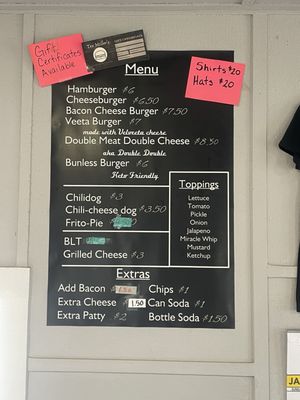 Gift
Certificates
Available
Menu
Shirts $20
Hats $20
Hamburger $6
Cheeseburger $6.50
Bacon Cheese Burger $7.50
Veeta Burger $7
made with Velveeta cheese
Double Meat Double Cheese $8.50
aka Double Double
Bunless Burger $6
Keto Friendly
Chilidog $3
Chili-cheese dog $3.50
Frito-Pie
BLT
Grilled Cheese $3
Toppings
Lettuce
Tomato
Pickle
Onion
Jalapeno
Miracle Whip
Mustard
Ketchup
Extras
Add Bacon
Chips $1
Extra Cheese 1.50
Can Soda $1
Extra Patty $2
Bottle Soda $1.50